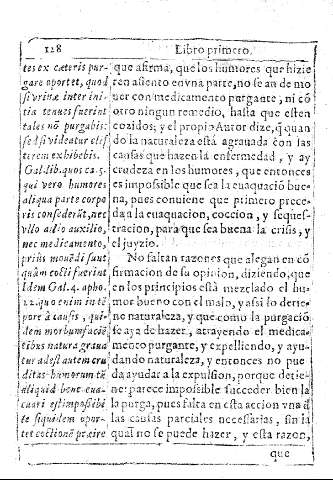 128
Libro primero.
tes ex cæteris pur-
gare oportet, quod
si vrinæ inter ini-
tia tenues fuerint
tales nō purgabis:
sed si videatur elis-
terem exhibebis.
Gal. lib. quos ca. 5.
qui vero humores
aliqua parte corpo
ris consederūt, nec
vllo alio auxilio,
nec medicamento,
priùs mouēdi sunt
quàm cocti fuerint
Idem Gal. 4. apho.
22. quo enim in tē
pore à causis, qui-
dem morbum faciē
tibus natura graua
tur adest autem cru
ditas humorum tū
aliquid bene eua-
cuari est impossibi
le siquidem opor-
tet coctionē præire
que afirma, que los humores que hizie
ren asiento en vna parte, no se an de mo
uer con medicamento purgante, ni cō
otro ningun remedio, hasta que esten
cozidos; y el propio Autor dize, q̃ quan
do la naturaleza està agrauada con las
causas que hazen la enfermedad, y ay
crudeza en los humores, que entonces
es impossible que sea la euaquaciō bue
na, pues conuiene que primero prece-
da a la euaquacion, coccion, y seques-
tracion, para que sea buena la crisis, y
el juyzio.
No faltan razones que alegan en cō
firmacion de su opinion, diziendo, que
en los principios està mezclado el hu-
mor bueno con el malo, y assi lo detie-
ne naturaleza, y que como la purgaciō
se aya de hazer, atrayendo el medica-
mento purgante, y expelliendo, y ayu-
dando naturaleza, y entonces no pue
da ayudar a la expulsion, porque detie-
ne: parece impossible succeder bien la
la purga, pues falta en esta accion vna d̃
las causas parciales necessarias, sin la
qual no se puede hazer, y esta razon,
que